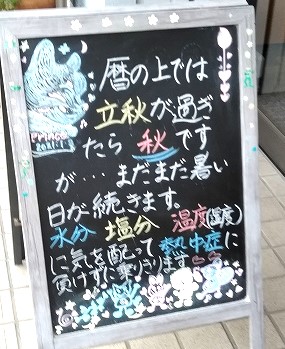 暦の上では
立秋が過ぎ
たら 秋です
が…まだまだ暑い
日が続きます。
水分 塩分 温度(湿度)
に気を配って熱中症に
負けずに乗りきります